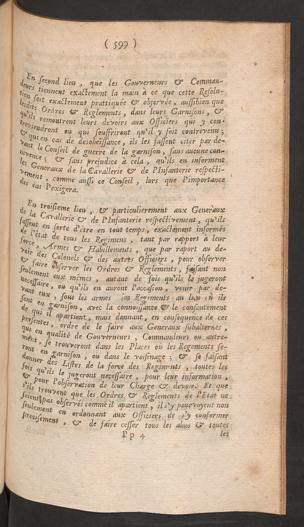 ( 599 )
En second lieu, que les Gouverneurs & Comman-
deurs tiennent exactement la main à ce que cette Resolu-
tion soit exactement prattiquée & observée, aussibien que
lesdits Ordres & Reglements, dans leurs Garnisons, &
qu'ils remontrent leurs devoirs aux Officiers qui y con-
treviendront ou qui souffriront qu'il y soit contrevenu;
& que en cas de desobeïssance, ils les fassent citer par de-
vant le Conseil de guerre de la garnison, sans aucune con-
& sans prejudice à cela, qu'ils en informent
les Generaux de la Cavallerie & de l'Infanterie respecti-
vement, comme aussi ce Conseil, lors que l'importance
des cas l'exigera.
En troisieme lieu, & particulierement aux Generaux
de la Cavallerie & de l'Infanterie respectivement, qu'ils
fassent en sorte d'étre en tout temps, exactement informés
de l'état de tous les Regimens, tant par rapport à leur
force, Armes & Habillements, que par raport au de-
voir des Colonels & des autres Officiers, pour observer
& faire observer les Ordres & Reglements, faisant non
seulement eux mémes, autant de fois qu'ils le jugeront
necessaire, ou qu'ils en auront l'occasion, venir par de-
vant eux, sous les armes les Regiments au lieu où ils
sont en garnison, avec la connoissance & le consentement
de qui il apartient, mais donnant, en consequence de ces
presentes, ordre de le faire aux Generaux subalternes,
qui en qualité de Gouverneurs, Commandeurs ou autre-
ment, se trouveront dans les Places où les Regiments se-
ront en garnison, ou dans le voisinage; & se faisant
donner des Listes de la force des Regiments, toutes les
fois qu'ils le jugeront necessaire, pour leur information,
& pour l'observation de leur Charge & devoir: Et que
s'ils trouvent que les Ordres & Reglements de l'Etat ne
soient pas observés comme il apartient, il s'y pourvoyent non
seulement en ordonnant aux Officiers de s'y conformer
precisement, & de faire cesser tous les abus & toutes
Pp 4
les